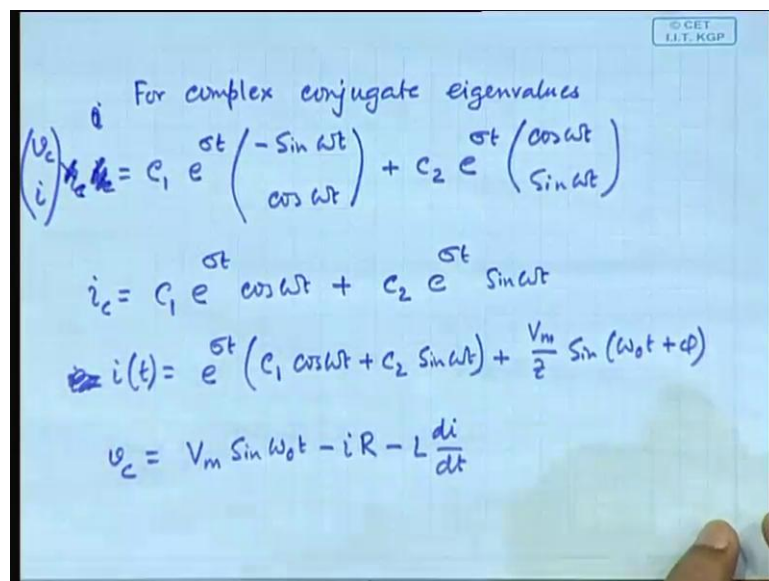 © CET
I.I.T. KGP
For complex conjugate eigenvalues
(v_c i) = c₁ e^σt (- Sin ωt cos ωt) + c₂ e^σt (cos ωt Sin ωt)
i_c = c₁ e^σt cos ωt + c₂ e^σt Sin ωt
i(t) = e^σt (c₁ cos ωt + c₂ Sin ωt) + V_m/Z Sin (ω₀t + φ)
v_c = V_m Sin ω₀t - iR - L di/dt